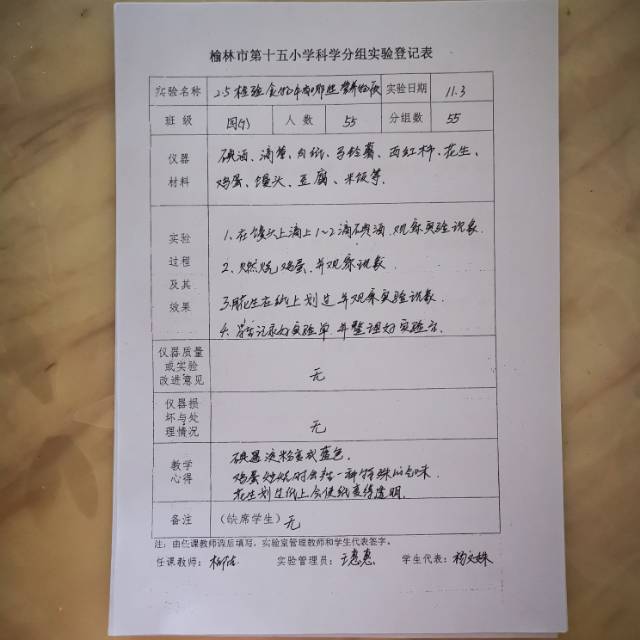 榆林市第十五小学科学分组实验登记表
实验名称 2.5检验食物中有哪些营养物质 实验日期 11.3
班级 四(4) 人数 55 分组数 55
仪器
材料
碘酒、滴管、白纸、马铃薯、西红柿、花生、
鸡蛋、馒头、豆腐、米饭等.
实验
过程
及其
效果
1、在馒头上滴上1~2滴碘酒.观察实验现象.
2、燃烧鸡蛋、并观察现象.
3.用花生在纸上划过并观察实验现象.
4、记录好实验单并整理好实验台.
仪器质量
或实验
改进意见
无
仪器损
坏与处
理情况
无
教学
心得
碘遇淀粉变成蓝色.
鸡蛋燃烧时会有一种特殊的气味.
花生划过纸上会使纸变得透明.
备注 (缺席学生) 无
注：由任课教师课后填写，实验室管理教师和学生代表签字。
任课教师： 实验管理员：王惠惠 学生代表：杨文姝